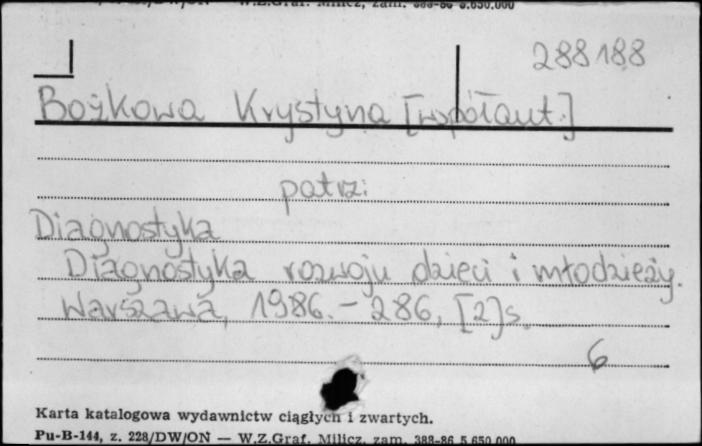 W.Z.Graf. Milicz, zam. 388-86 5.650.000
288188
Bożkowa Krystyna [współaut.]
patrz:
Diagnostyka
Diagnostyka rozwoju dzieci i młodzieży.
Warszawa, 1986. - 286, [2]s.
6
Karta katalogowa wydawnictw ciągłych i zwartych.
Pu-B-144, z. 228/DW/ON — W.Z.Graf. Milicz, zam. 388-86 5.650.000